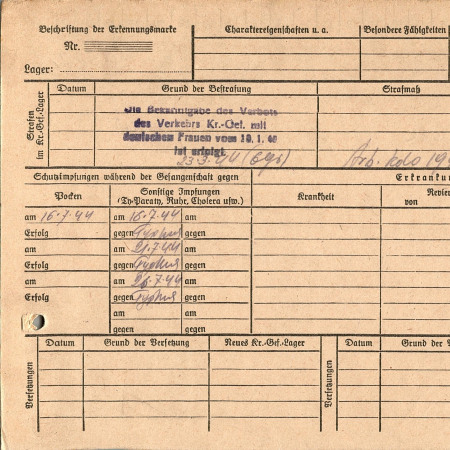 Beschriftung der Erkennungsmarke
Nr.
Lager:
Charaktereigenschaften u. a.
Besondere Fähigkeiten
Strafen im Kr.-Gef.-Lager
Datum
Grund der Bestrafung
Strafmaß
Die Bekanntgabe des Verbots
des Verkehrs Kr.-Gef. mit
deutschen Frauen vom 10.1.40
ist erfolgt.
23.3.44
Arb. Kdo 19
Schutzimpfungen während der Gefangenschaft gegen
Erkranku
Pocken
Sonstige Impfungen
(Ty-Paraty, Ruhr, Cholera usw.)
Krankheit
Revier
von
am 16.7.44 am 16.7.44 am
Erfolg gegen Typhus gegen
am am 21.7.44 am
Erfolg gegen Typhus gegen
am am 26.7.44 am
Erfolg gegen Typhus gegen
am am
gegen gegen
Versetzungen
Datum
Grund der Versetzung
Neues Kr.-Gef.-Lager
Versetzungen
Datum
Grund der V